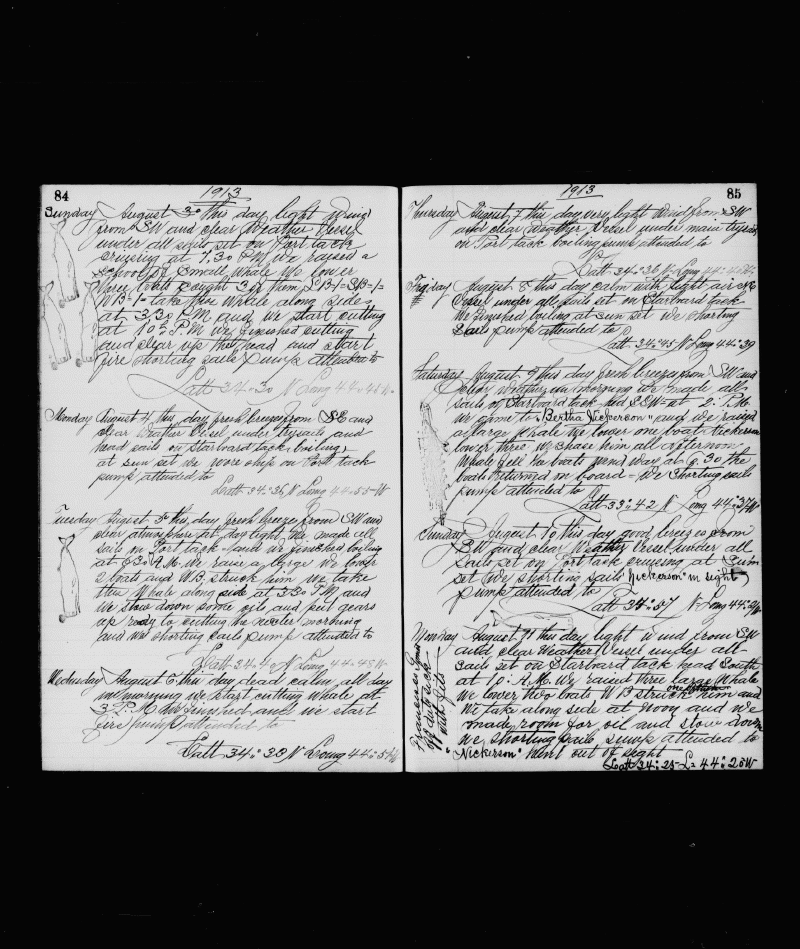 84
1913
Sunday August 3rd this day light wind
from SW and clear Weather Vessel
under all sails set on Port tack
cruising at 1.30 P.M. We raised a
school of small Whale We lower
three boats caught 3 of them SB=1= =1=
WB=1= take thru Whale along side
at 3/30 P.M and We start cutting
at 10 P.M We finished cutting
and clear up the head and start
fire shorting sails Pump attended to
Latt 34=30 N Long 44=
Monday August 4th this day fresh breeze from SE and
clear Weather Vessel under trysails and
head sails on starboard tack boiling
at sun set we wore ship on Port tack
pump attended to
Latt 34=36 N Long 44=55=W
Tuesday August 5th this day fresh breeze from SW and
clear atmosphere at day light We made all
sails on Port tack until We finished boiling
at 6.30 A.M. We raise a large We lower
2 boats and W.B. struck him we take
thru Whale along side at 3.30 P.M and
We stow down some oils and put gears
up ready to cutting the morning
and We shorting sails pump attended to
Latt 34=40 N Long 44=48 W
Wednesday August 6 this day dead calm all day
in morning we start cutting Whale at
3 P.M We finished and we start
fire pump attended to
Latt 34=38 N Long 44=
85
1913
Thursday August 7 this day very light Wind from SW
and clear Weather Vessel under main trysail
on Port tack boiling pump attended to
Latt 34=36 N Long 44=
Friday August 8th this day calm with light air
Vessel under all sails set on Starboard tack
We finished boiling at sun set we shorting
Sails pump attended to
Latt 34=45 N Long 44=39
Saturday August 9 this day fresh breeze from SW and
clear weather in morning we made all
sails on Starboard tack hed SSW at 2 P.M.
We come to "Bertha" and We raised
a large whale We lower one boat Nickerson
lower three We chase him all afternoon
Whale the boats way at 6.30 the
boats returned on board We Shorting sails
pump attended to
Latt 33=42 N Long 44=37W
Sunday August 10 this day good breeze from
SW and clear Weather Vessel under all
sails set on Port tack cruising at Sun
set We shorting sails "Nickerson" in sight
pump attended to
Latt 34=57 N Long 44=
Monday August 11 this day light wind from SW
and clear Weather Vessel under all
sails set on Starboard tack head South
at 10. A.M. We raised three large Whale
We lower two boats W B struck him and
We take along side at Noon and We
made room for oil and stow down
We shorting sails pump attended to
"Nickerson" went out of sight
Latt 34=25 L= 44=25W
off duty sick
with